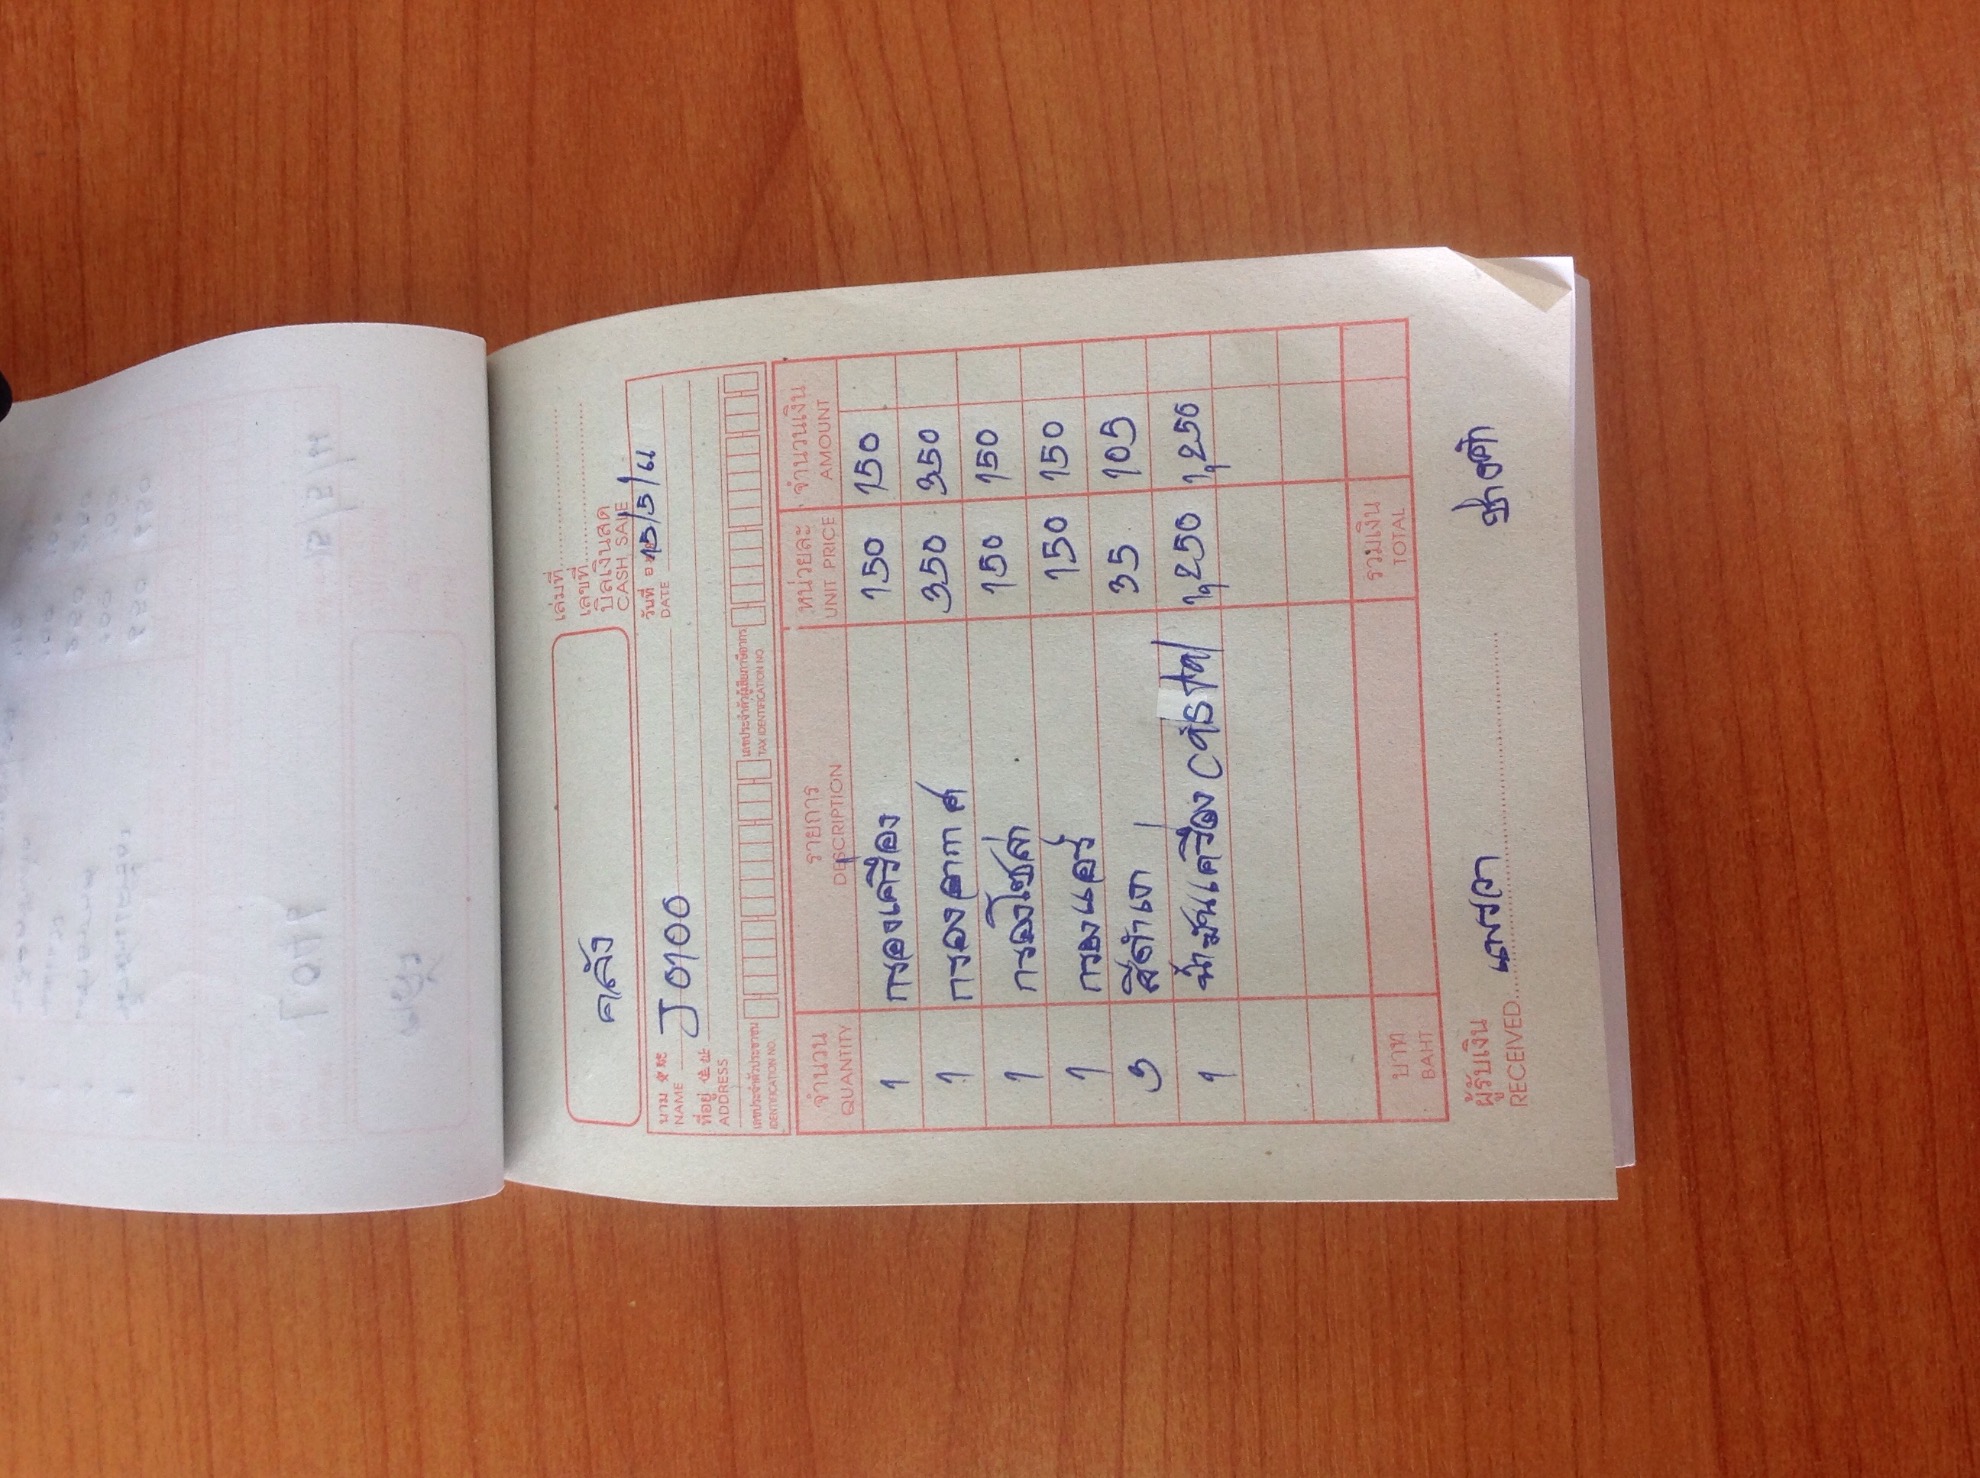 เล่มที่
เลขที่
คลัง
บิลเงินสด
CASH SALE
วันที่ 15/5/61
DATE
นาม
NAME J0100
ที่อยู่
ADDRESS
เลขประจำตัวประชาชน
IDENTIFICATION NO.
เลขประจำตัวผู้เสียภาษีอากร
TAX IDENTIFICATION NO.
จำนวน รายการ หน่วยละ จำนวนเงิน
QUANTITY DESCRIPTION UNIT PRICE AMOUNT
1 กรองเครื่อง 150 150
1 กรองอากาศ 350 350
1 กรองโซล่า 150 150
1 กรองแอร์ 150 150
3 สีดำเงา 35 105
1 น้ำมันเครื่อง 1,250 1,250
บาท รวมเงิน
BAHT TOTAL
ผู้รับเงิน
RECEIVED